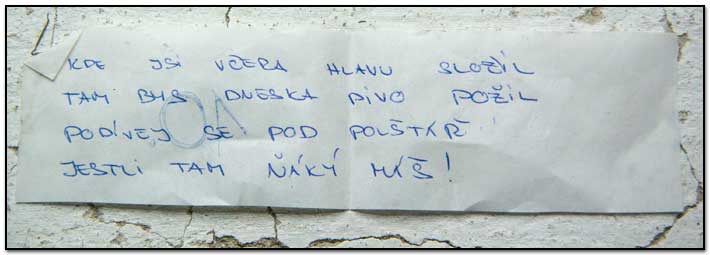 KDE JSI VČERA HLAVU SLOŽIL
TAM BYS DNESKA PIVO POŽIL
PODÍVEJ SE POD POLŠTÁŘ
JESTLI TAM ŇÁKÝ MÁŠ!